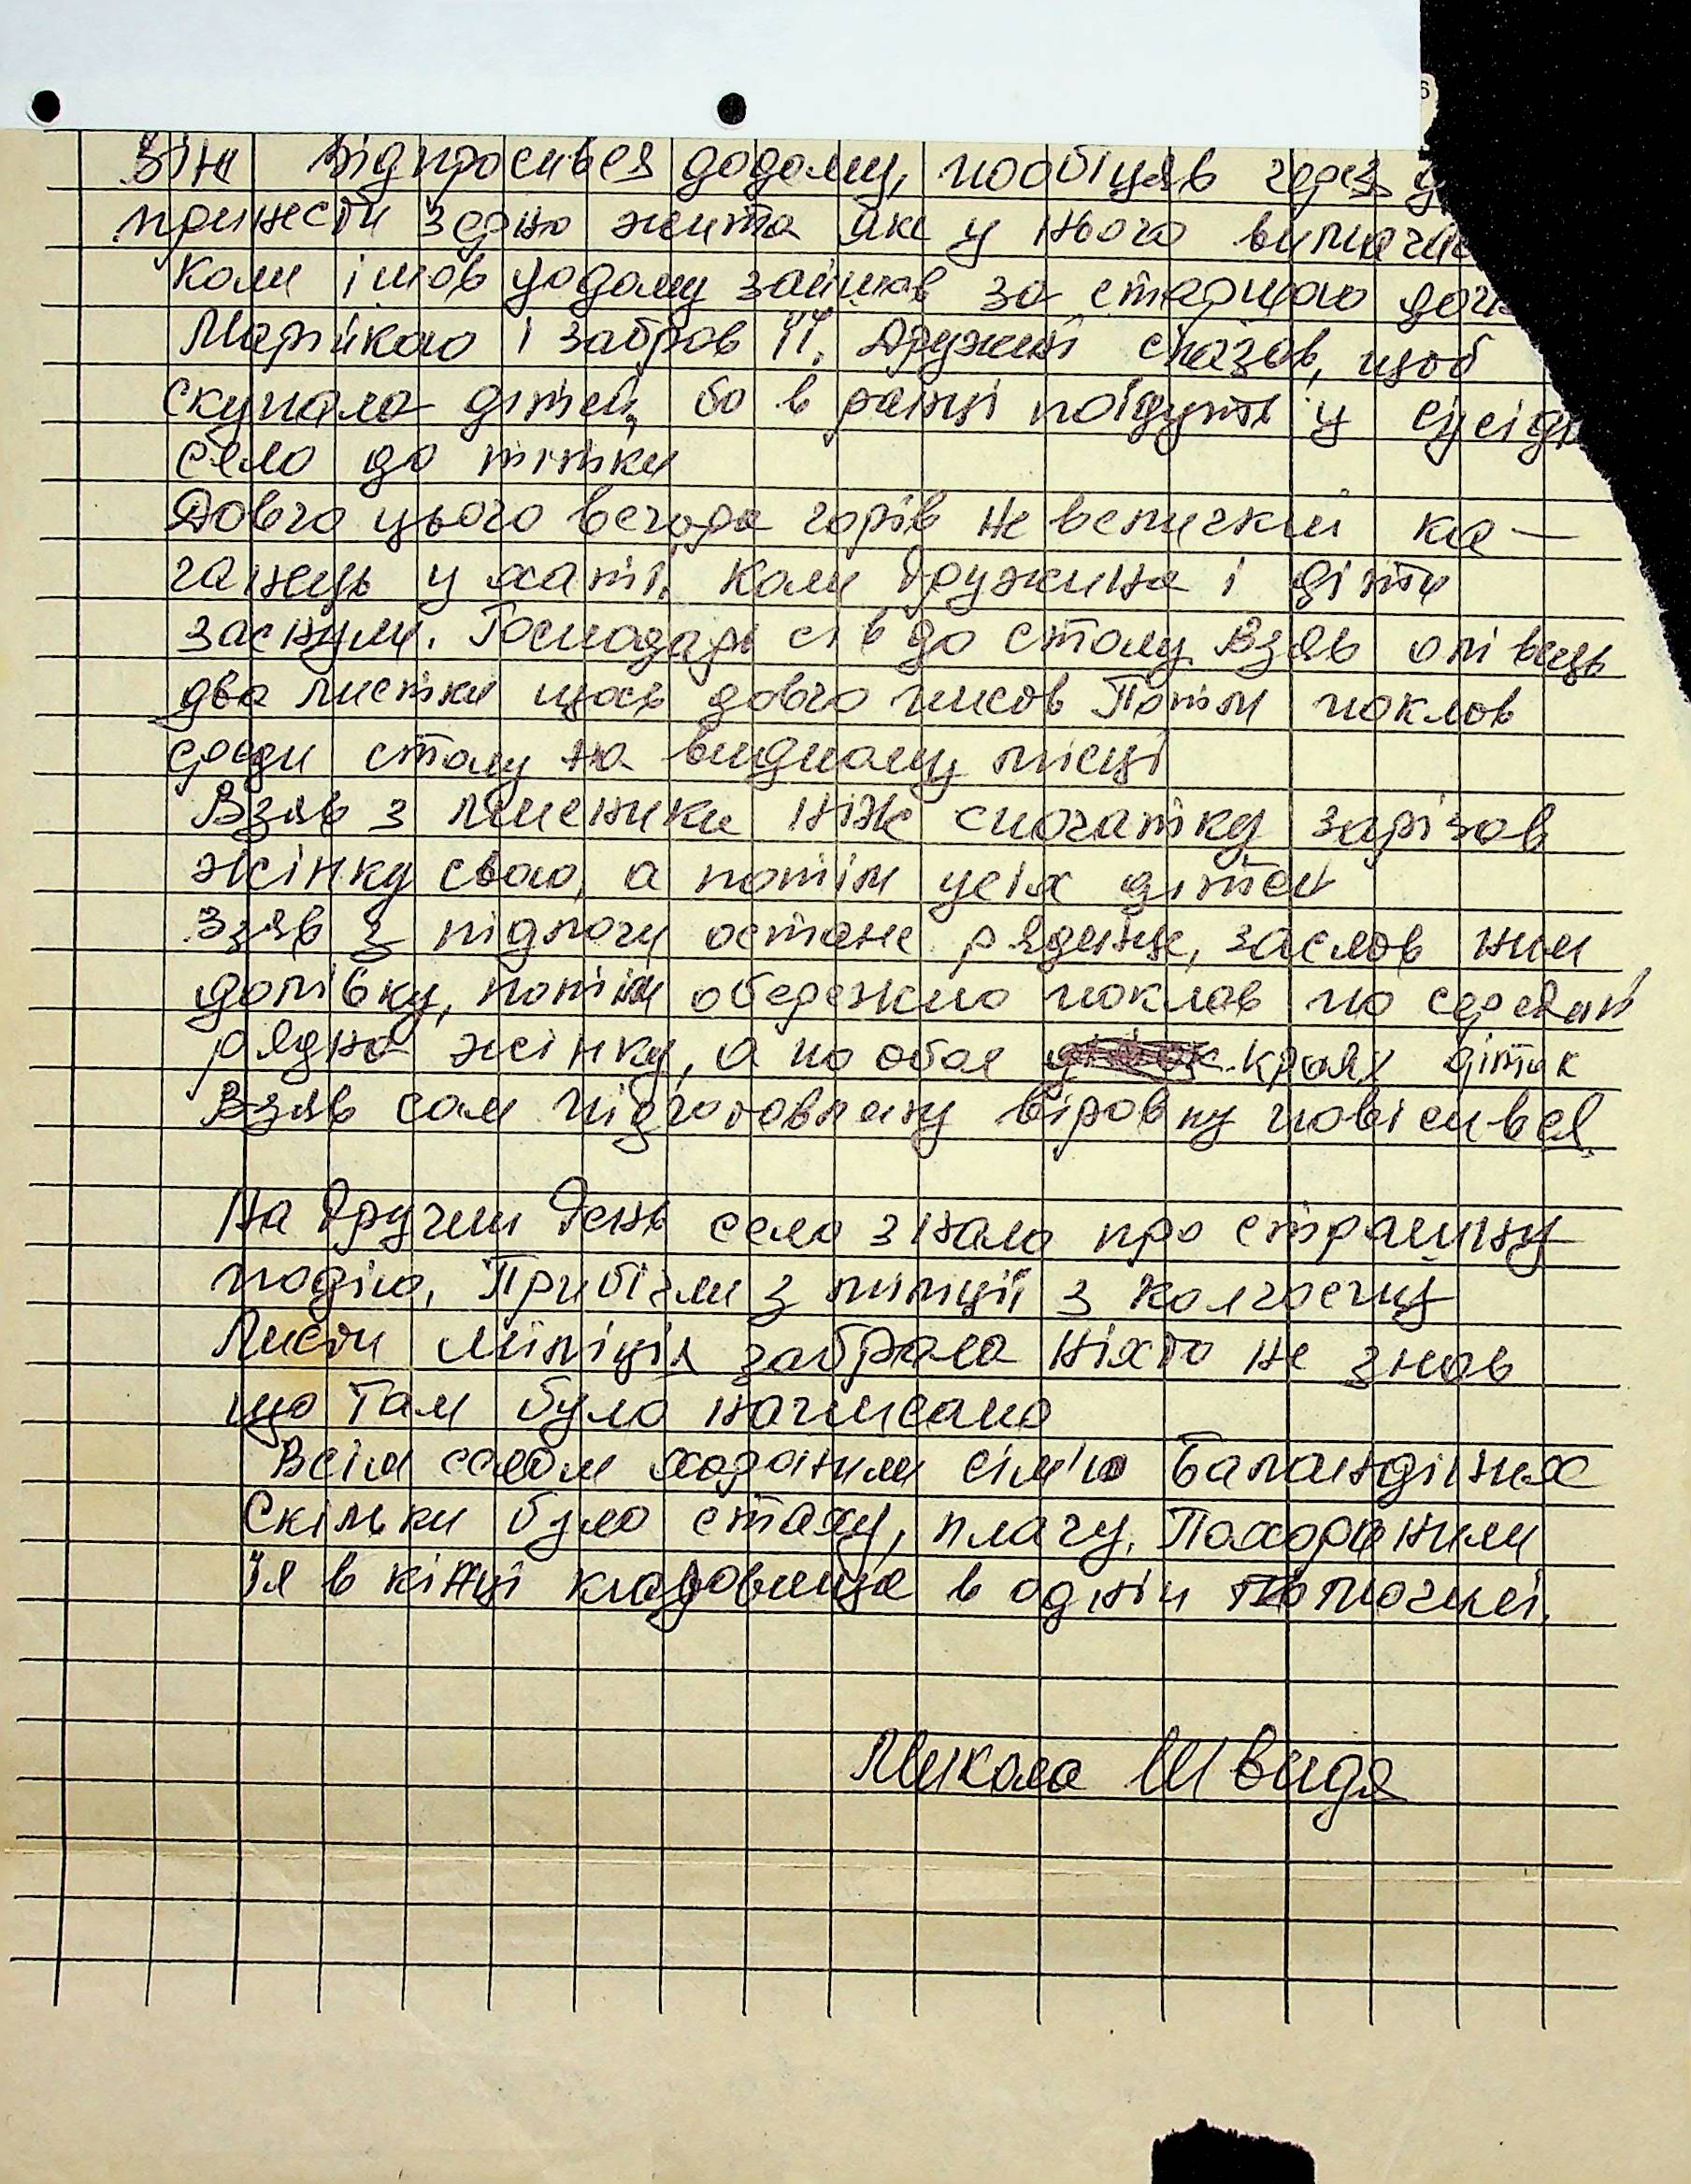 Він відпросився додому, пообіцяв через
принести зерно жита яке у нього
Коли ішов додому зайшов за старшою
Марійкою і забрав її. Дружині сказав, щоб
скупала дітей, бо в ранці поїдуть у
село до тітки
Довго цього вечора горів не величкий ка-
ганець у хаті. Коли дружина і діти
заснули. Господарь сів до столу Взяв олівець
два листки щось довго писав Потім поклав
среди столу на видному місці
Взяв з мисника ніж спочатку зарізав
жінку свою, а потім усіх дітей
Взяв з підлоги останє ряденце, заслав ним
долівку, потім обережно поклав по середині
рядна жінку, а по обоє краях діток
Взяв сам підготовлену віровку повісився.
На другий день село знало про страшну
подію. Прибігли з міліції з колгоспу
Листи міліція забрала ніхто не знав
що там було написано
Всім селом хоронили сім'ю Баландіних
Скільки було страху, плачу. Похоронили
їх в кінці кладовища в одній
Микола Швидя